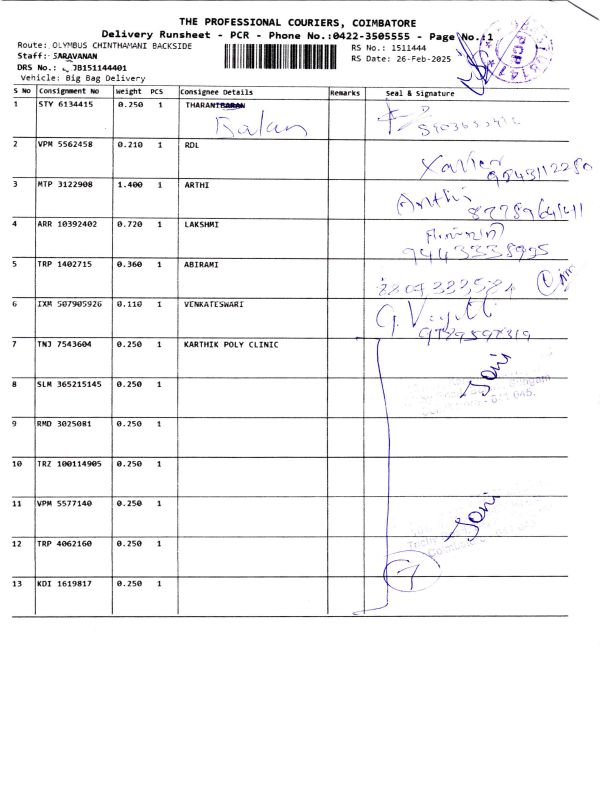 THE PROFESSIONAL COURIERS, COIMBATORE
Delivery Runsheet - PCR - Phone No.:0422-3505555 - Page No.:1
Route: OLYMBUS CHINTHAMANI BACKSIDE
RS No.: 1511444
Staff: SARAVANAN
RS Date: 26-Feb-2025
DRS No.: JB151144401
Vehicle: Big Bag Delivery
S No Consignment No Weight PCS Consignee Details Remarks Seal & Signature
1 STY 6134415 0.250 1 THARANIBARAN
2 VPM 5562458 0.210 1 RDL
Xavier
9543112280
3 MTP 3122908 1.400 1 ARTHI
Arthi
8778964141
4 ARR 10392402 0.720 1 LAKSHMI
9443338995
5 TRP 1402715 0.360 1 ABIRAMI
6 IXM 507905926 0.110 1 VENKATESWARI
7 TNJ 7543604 0.250 1 KARTHIK POLY CLINIC
8 SLM 365215145 0.250 1
9 RMD 3025081 0.250 1
10 TRZ 100114905 0.250 1
11 VPM 5577140 0.250 1
12 TRP 4062160 0.250 1
7
13 KDI 1619817 0.250 1